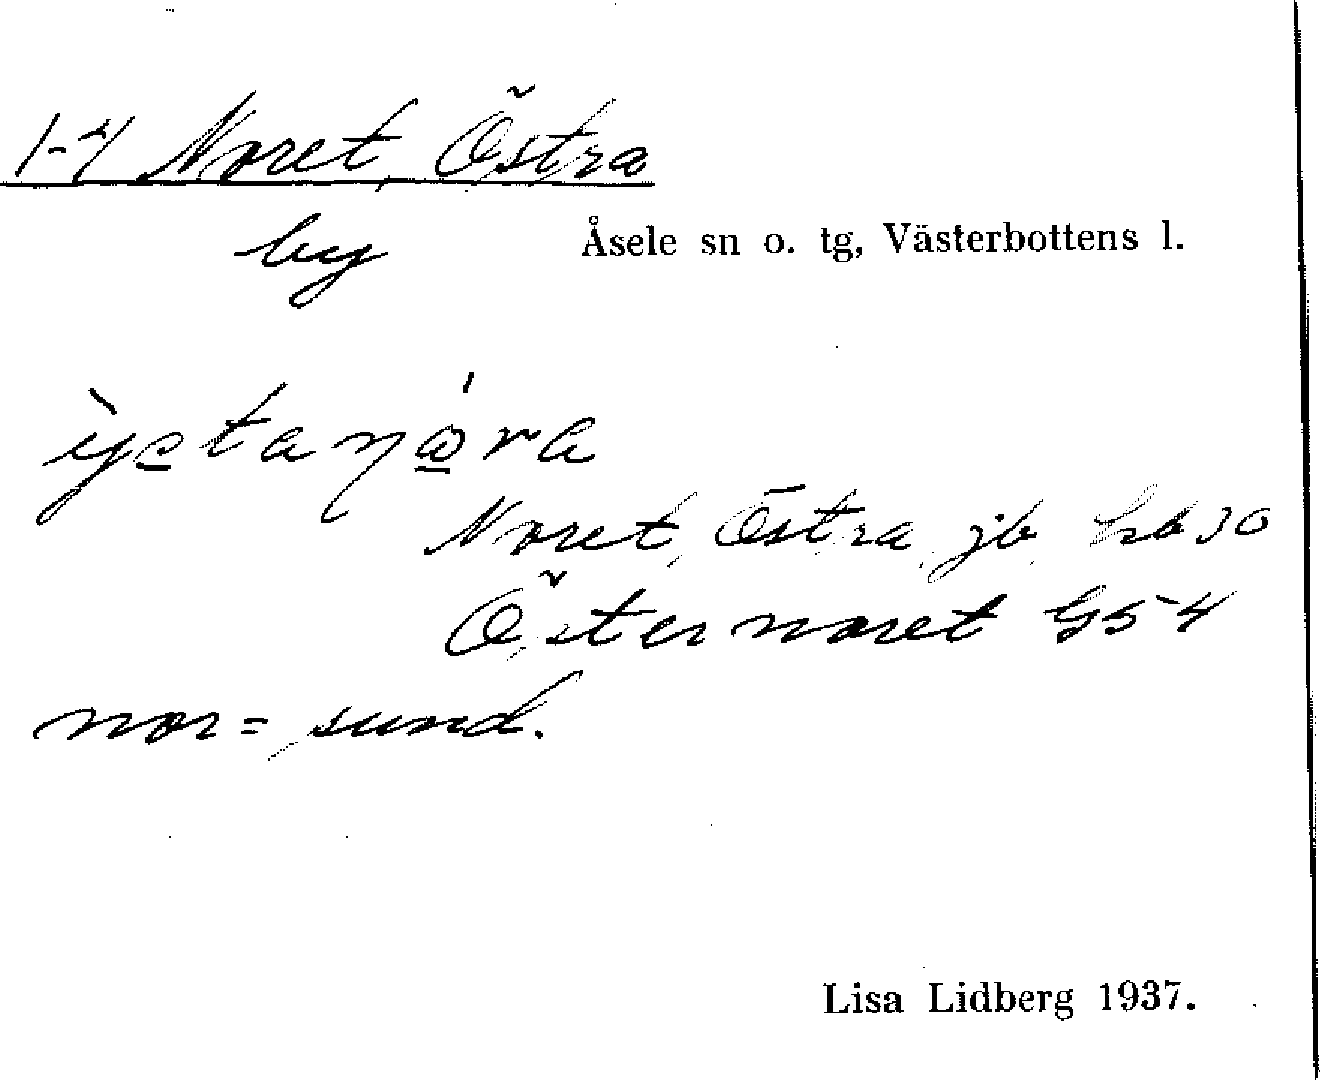 1-4 Noret, Östra
by
Åsele sn o. tg, Västerbottens l.
Noret, Östra jb
Östernoret G54
nor = sund.
Lisa Lidberg 1937.